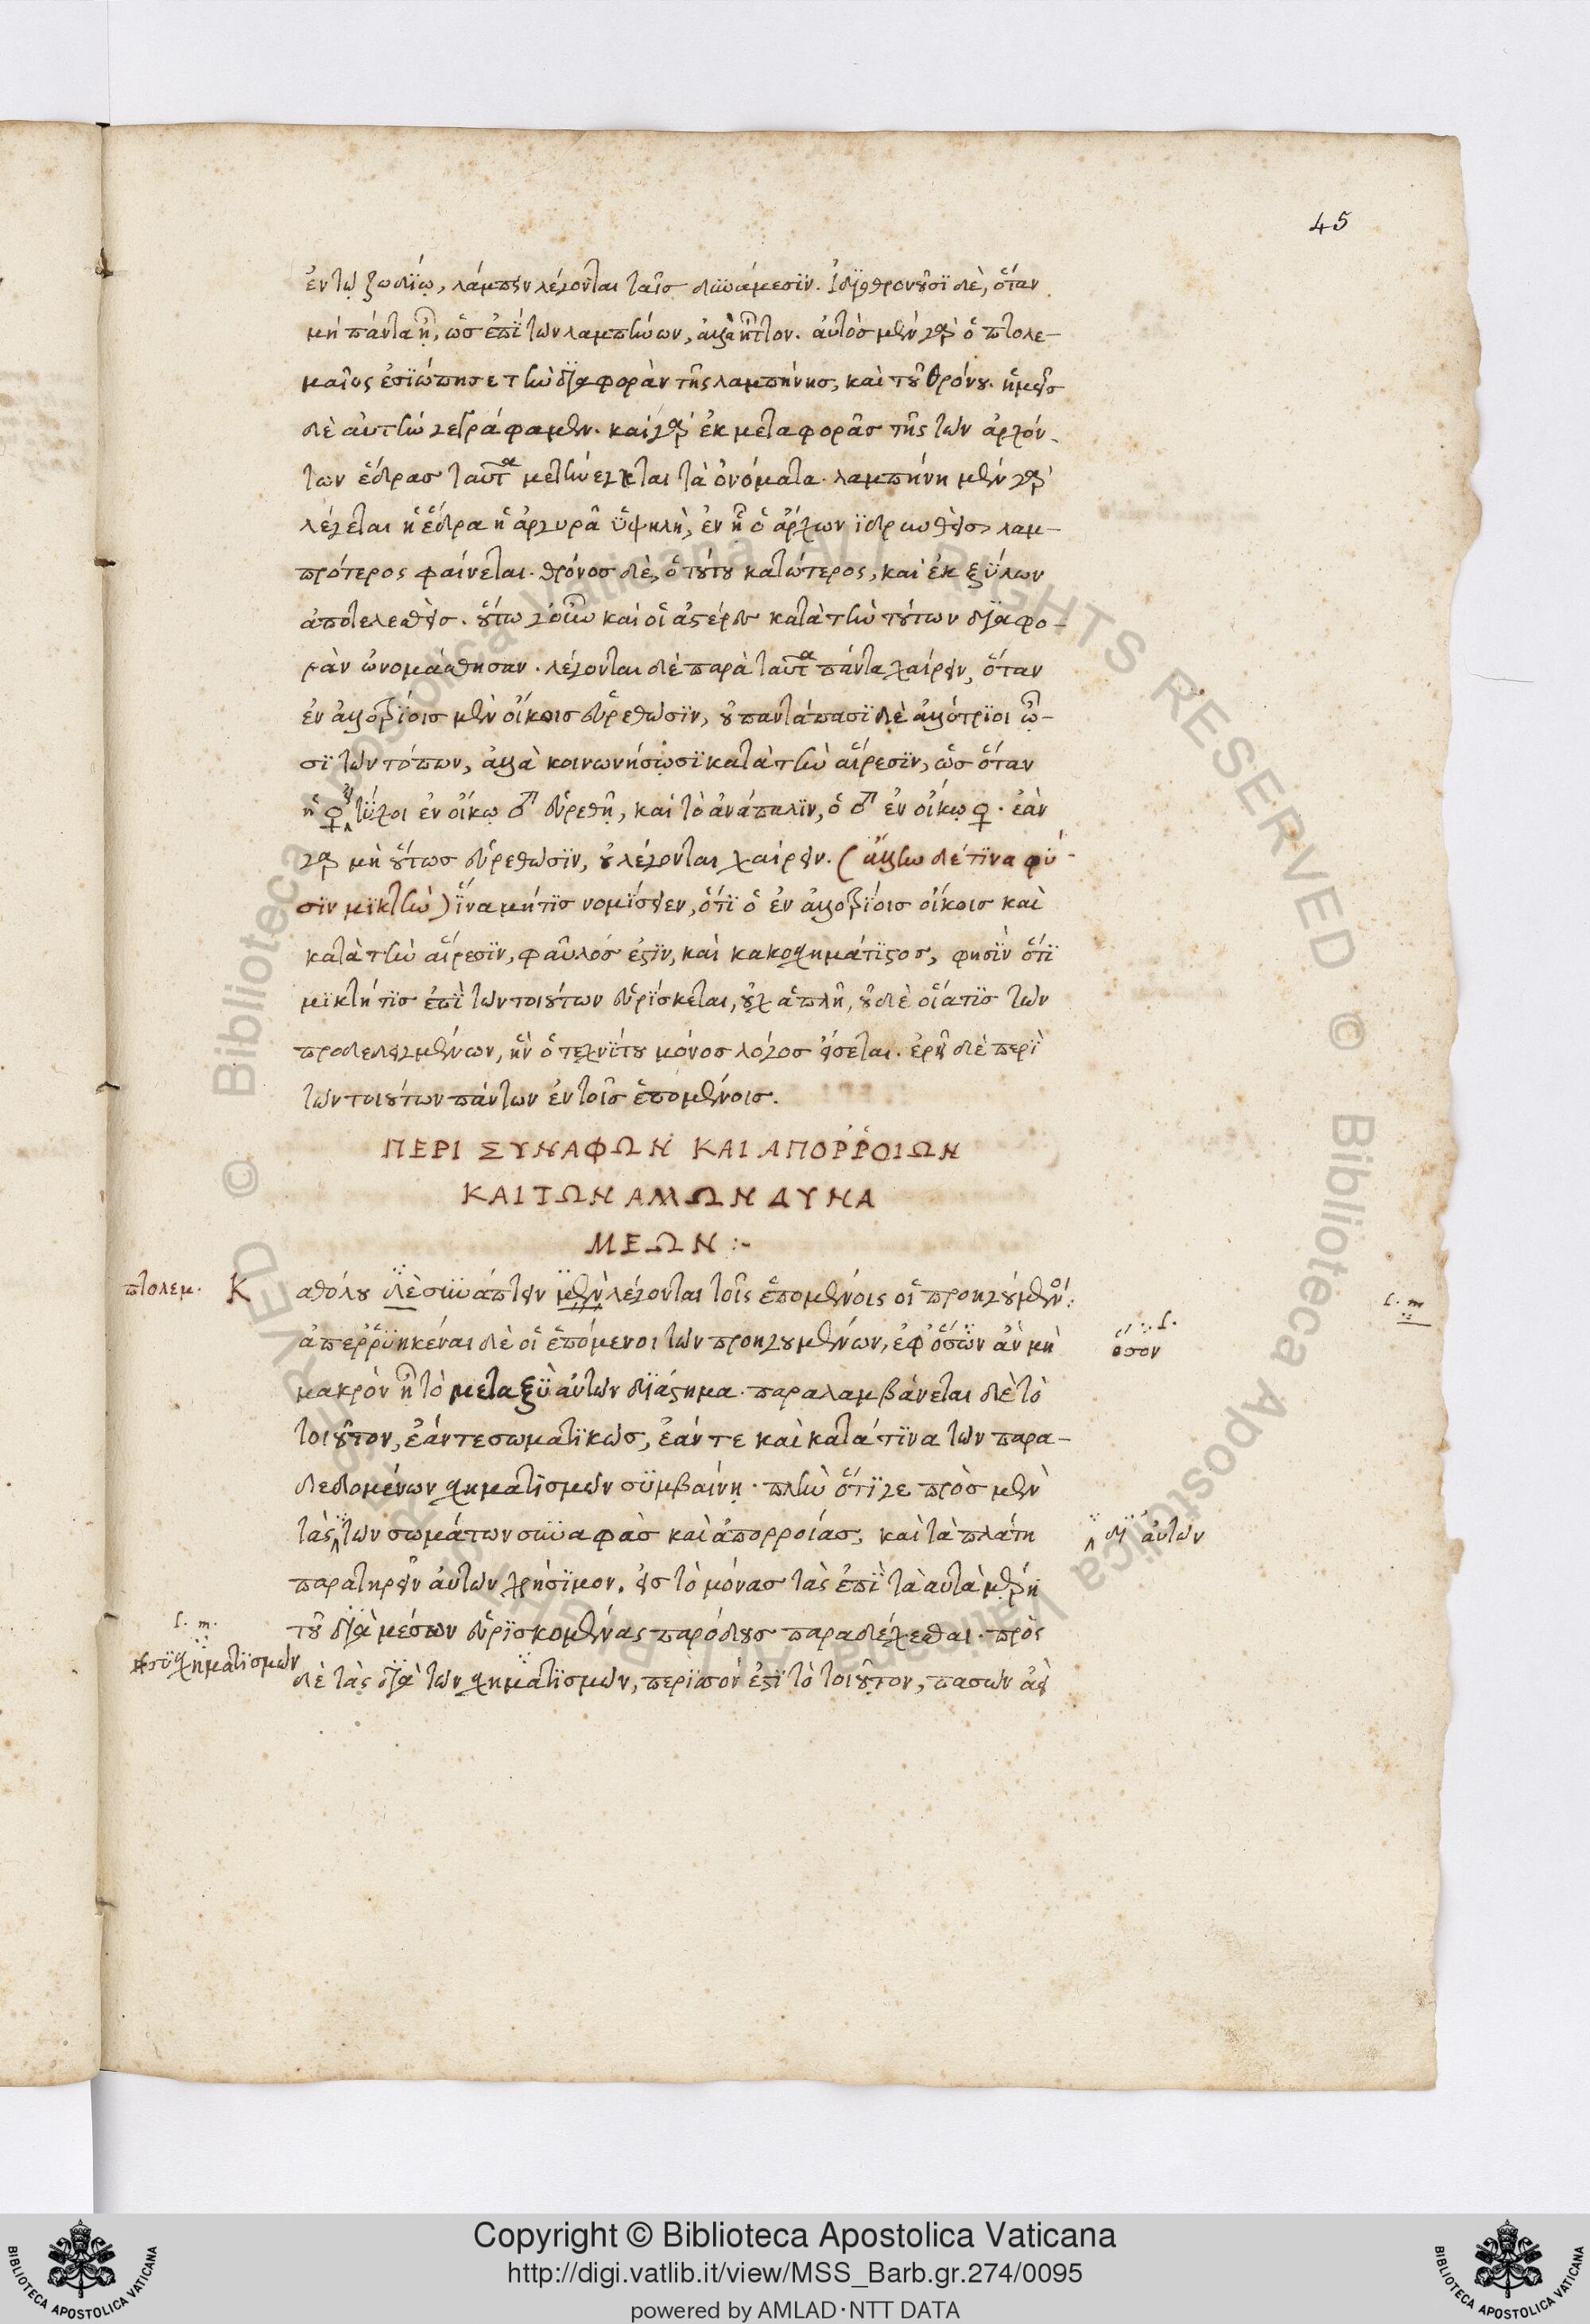 45
ἐν τῷ ζωδίῳ, λάμπειν λέγονται ταῖς δυνάμεσιν. ἰδιοθρονοῦσι δὲ, ὅταν
μὴ πάντα ᾖ, ὡς ἐπὶ τῶν λαμπηνῶν, ἀλλὰ ἧττον. αὐτὸς μὲν γὰρ ὁ πτολε-
μαῖος ἐσιώπησε τὴν διαφορὰν τῆς λαμπήνης, καὶ τοῦ θρόνου. ἡμεῖς
δὲ αὐτὴν γεγράφαμεν. καὶ γὰρ ἐκ μεταφορᾶς τῆς τῶν ἀρχόν-
των ἕδρας ταῦτα μετήνεγκται τὰ ὀνόματα. λαμπήνη μὲν γὰρ
λέγεται ἡ ἕδρα ἡ ἀργυρᾶ ὑψηλὴ, ἐν ᾗ ὁ ἄρχων ἱδρυνθεὶς λαμ-
πρότερος φαίνεται. θρόνος δὲ, ὁ τούτου κατώτερος, καὶ ἐκ ξύλων
ἀποτελεσθείς. οὕτω γοῦν καὶ οἱ ἀστέρες κατὰ τὴν τούτων διαφο-
ρὰν ὠνομάσθησαν. λέγονται δὲ παρὰ ταῦτα πάντα χαίρειν, ὅταν
ἐν ἀλλοτρίοις μὲν οἴκοις εὑρεθῶσιν, οὐ παντάπασι δὲ ἀλλότριοι ὦ-
σι τῶν τόπων, ἀλλὰ κοινωνήσωσι κατὰ τὴν αἵρεσιν, ὡς ὅταν
ἡ ♀ εἰ τύχοι ἐν οἴκῳ ♂ εὑρεθῇ, καὶ τὸ ἀνάπαλιν, ὁ ♂ ἐν οἴκῳ ♀. ἐὰν
γὰρ μὴ οὕτως εὑρεθῶσιν, οὐ λέγονται χαίρειν. (ἄλλην δέ τινα φύ-
σιν μικτὴν) ἵνα μήτις νομίσειεν, ὅτι ὁ ἐν ἀλλοτρίοις οἴκοις καὶ
κατὰ τὴν αἵρεσιν, φαῦλός ἐστιν, καὶ κακοσχημάτιστος, φησὶν ὅτι
μικτή τις ἐπὶ τῶν τοιούτων εὑρίσκεται, οὐχ ἁπλῆ, οὐδὲ οἵα τις τῶν
προδεδειγμένων, ἣν ὁ τεχνίτου μόνος λόγος εἴσεται. ἐρεῖ δὲ περὶ
τῶν τοιούτων πάντων ἐν τοῖς ἑπομένοις.
ΠΕΡΙ ΣΥΝΑΦΩΝ ΚΑΙ ΑΠΟΡῤῬΟΙΩΝ
ΚΑΙ ΤΩΝ ΑΛΛΩΝ ΔΥΝΑ
ΜΕΩΝ :-
πτολεμ. Καθόλου δὲ συνάπτειν μὲν λέγονται τοῖς ἑπομένοις οἱ προηγούμενοι:
ἀπεῤῥυηκέναι δὲ οἱ ἑπόμενοι τῶν προηγουμένων, ἐφ' ὅσων ἂν μὴ
ὅσον
μακρὸν ᾖ τὸ μεταξὺ αὐτῶν διάστημα. παραλαμβάνεται δὲ τὸ
τοιοῦτον, ἐάν τε σωματικῶς, ἐάν τε καὶ κατά τινα τῶν παρα-
δεδομένων σχηματισμῶν συμβαίνῃ. πλὴν ὅτι γε πρὸς μὲν
τὰς τῶν σωμάτων συναφὰς καὶ ἀπορροίας, καὶ τὰ πλάτη
δι' αὐτῶν
παρατηρεῖν αὐτῶν χρήσιμον. εἰς τὸ μόνας τὰς ἐπὶ τὰ αὐτὰ μέρη
τοῦ διὰ μέσων εὑρισκομένας παρόδους παραδέχεσθαι. πρὸς
συσχηματισμῶν
δὲ τὰς διὰ τῶν σχηματισμῶν, περιττόν ἐστι τὸ τοιοῦτον, πασῶν ἀεὶ
Copyright © Biblioteca Apostolica Vaticana
http://digi.vatlib.it/view/MSS_Barb.gr.274/0095
powered by AMLAD·NTT DATA